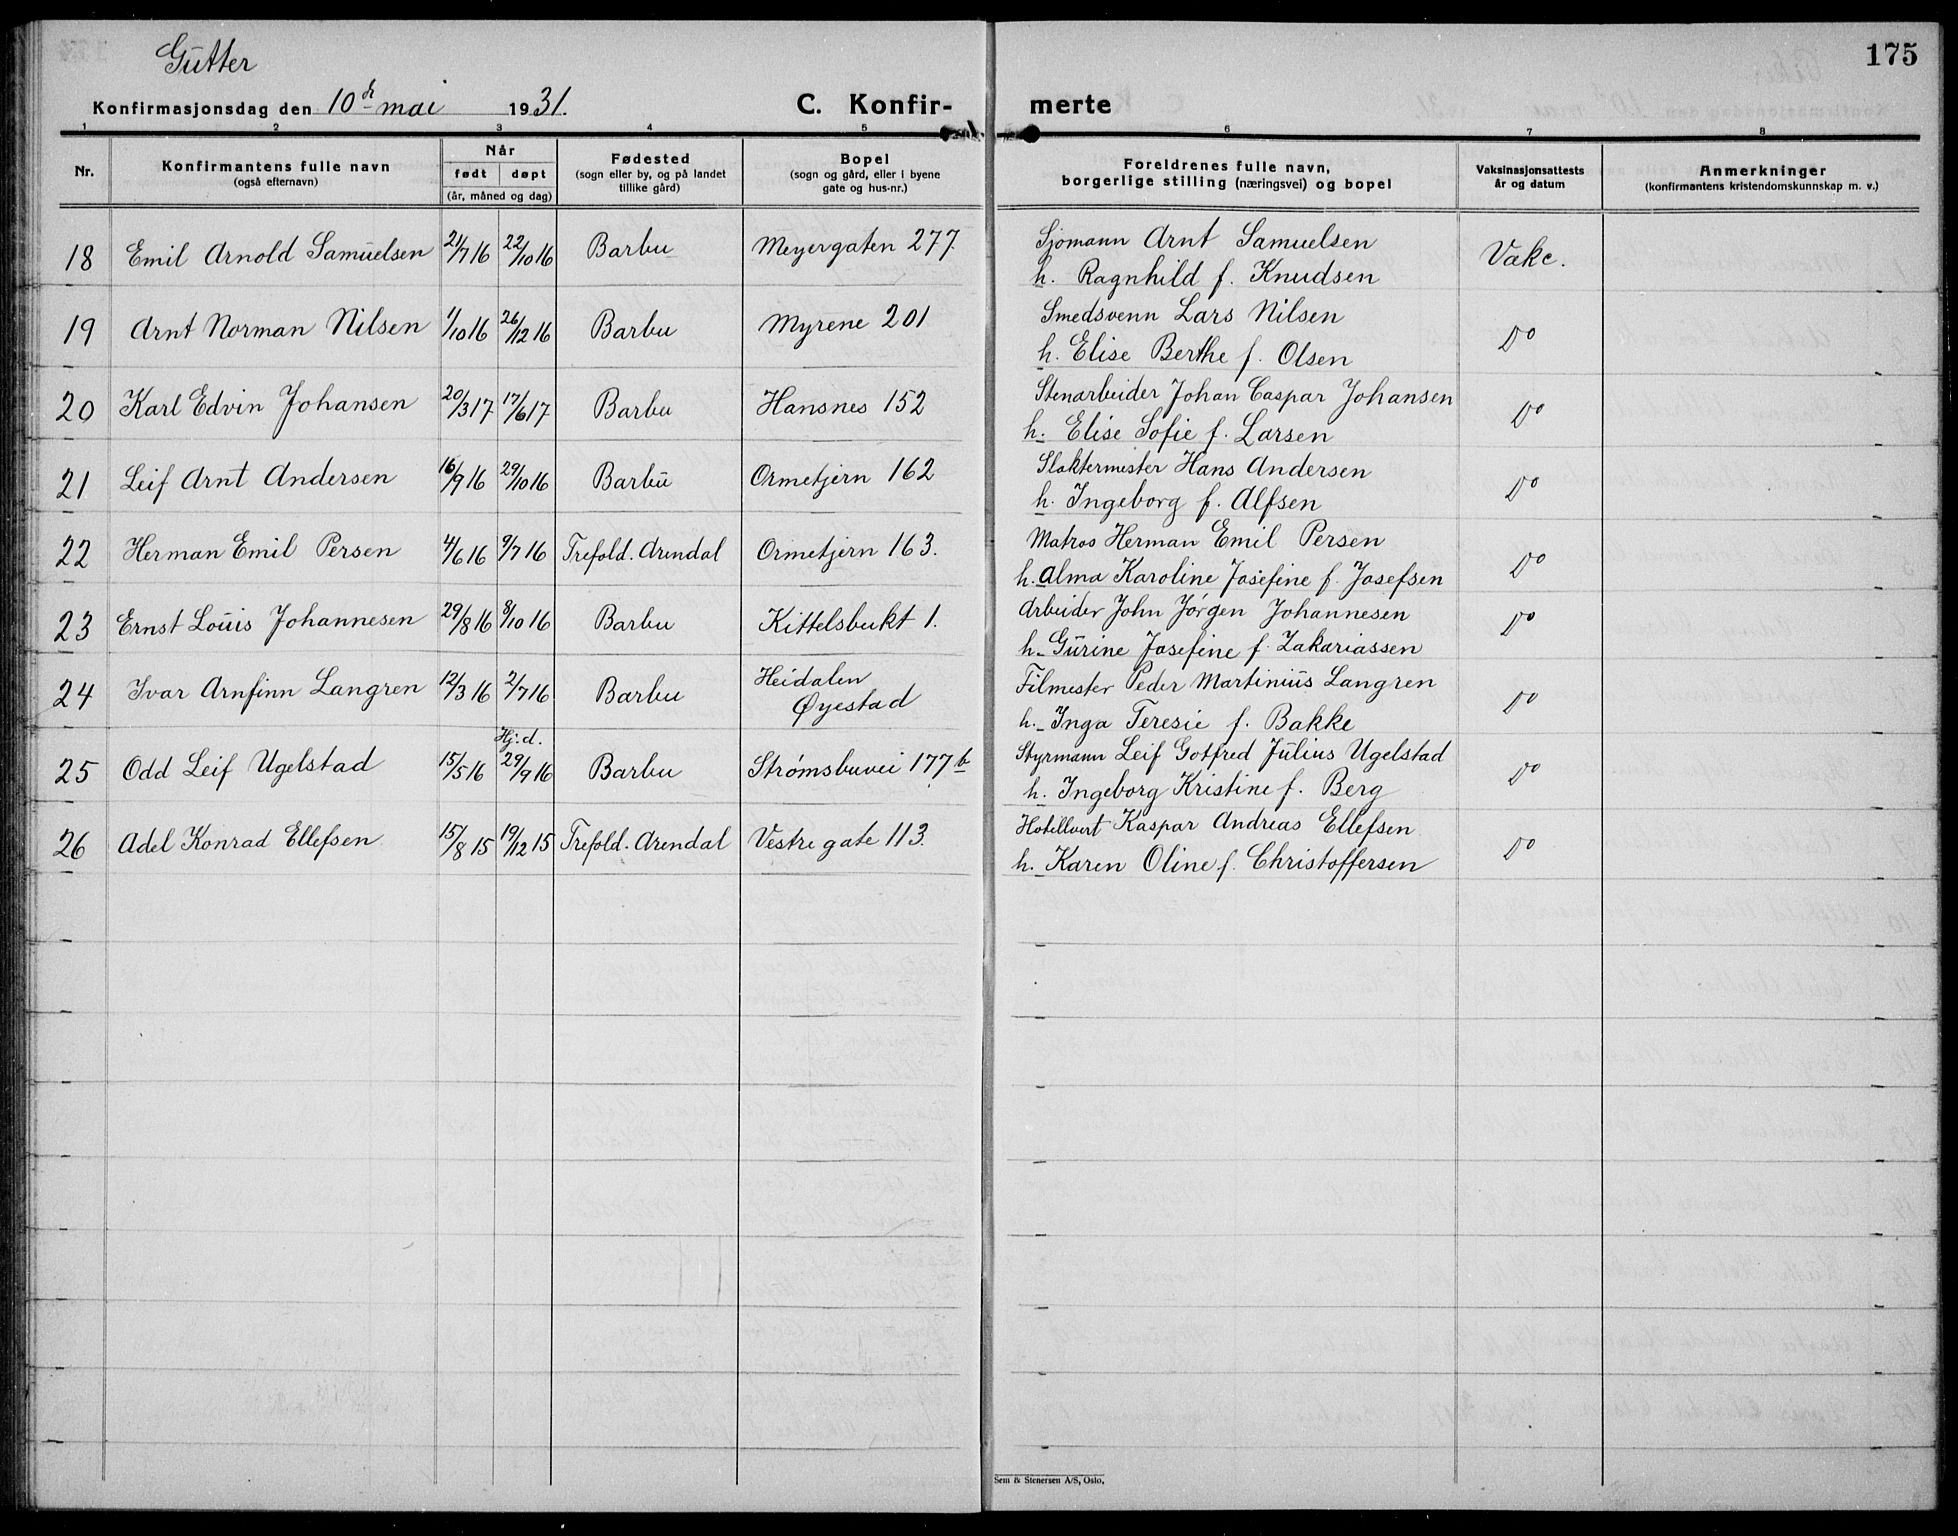 Gutter
175
Konfirmasjonsdag den 10de mai 1931.
C. Konfir- merte
1 2 3 4 5 6 7 8
Nr.
Konfirmantens fulle navn
(også efternavn)
Når
født døpt
(år, måned og dag)
Fødested
(sogn eller by, og på landet
tillike gård)
Bopel
(sogn og gård, eller i byene
gate og hus-nr.)
Foreldrenes fulle navn,
borgerlige stilling (næringsvei) og bopel
Vaksinasjonsattests
år og datum
Anmerkninger
(konfirmantens kristendomskunnskap m. v.)
18 Emil Arnold Samuelsen 21/7 16 22/10 16 Barbu Meyergaten 277. Sjømann Arnt Samuelsen Vakc.
h. Ragnhild f. Knudsen
19 Arnt Norman Nilsen 1/10 16 26/12 16 Barbu Myrene 201 Smedsvenn Lars Nilsen Do
h. Elise Berthe f. Olsen
20 Karl Edvin Johansen 20/3 17 17/6 17 Barbu Hansnes 152 Stenarbeider Johan Caspar Johansen Do
h. Elise Sofie f. Larsen
21 Leif Arnt Andersen 16/9 16 29/10 16 Barbu Ormetjern 162 Slaktermester Hans Andersen Do
h. Ingeborg f. Alfsen
22 Herman Emil Persen 4/6 16 9/7 16 Trefold. Arendal Ormetjern 163. Matros Herman Emil Persen Do
h. Alma Karoline Josefine f. Josefsen
23 Ernst Louis Johannesen 29/8 16 8/10 16 Barbu Kittelsbukt 1. Arbeider John Jørgen Johannesen Do
h. Gurine Josefine f. Zakariassen
24 Ivar Arnfinn Langren 12/3 16 2/7 16 Barbu Heidalen Filmester Peder Martinius Langren Do
Øyestad
h. Inga Teresie f. Bakke
Hj.d.
25 Odd Leif Ugelstad 15/5 16 29/9 16 Barbu Strømsbuvei 177 b Styrmann Leif Gotfred Julius Ugelstad Do
h. Ingeborg Kristine f. Berg
26 Adel Konrad Ellefsen 15/8 15 19/12 15 Trefold. Arendal Vestre gate 113. Hotellvert Kaspar Andreas Ellefsen Do
h. Karen Oline f. Christoffersen
Sem & Stenersen A/S, Oslo.